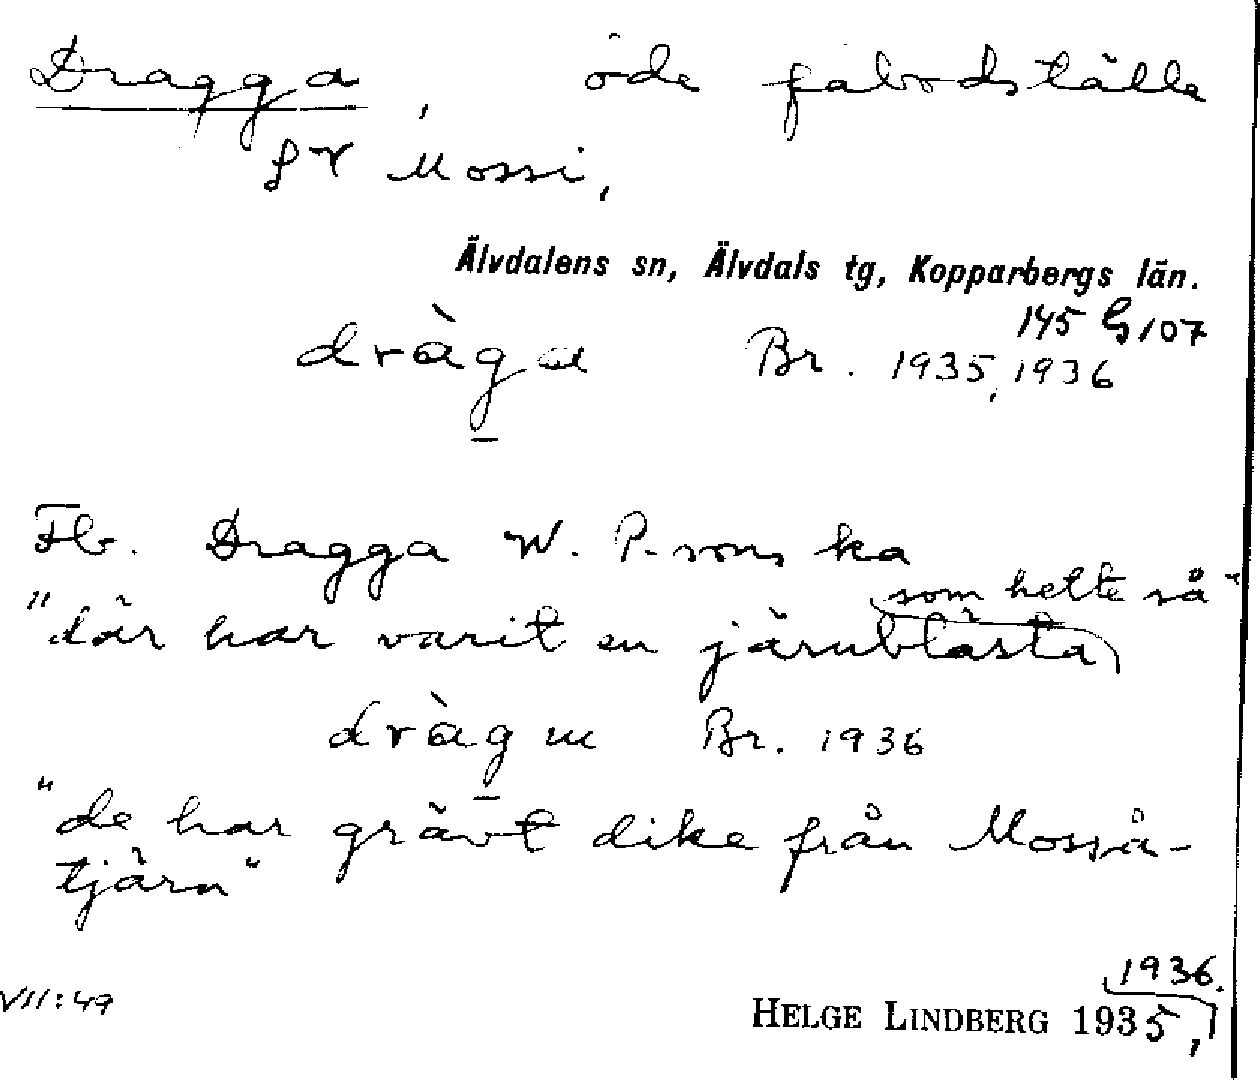 Dragga, öde fäbodställe
fr Mossi,
Älvdalens sn, Älvdals tg, Kopparbergs län.
145 G 107
dràga Br. 1935, 1936
Fb. Dragga W. P-sons ka
som hette så"
"där har varit en järnblästa
dràgɯ Br. 1936
"de har grävt dike från Mosså-
tjärn"
1936.
VII:49
HELGE LINDBERG 1935,